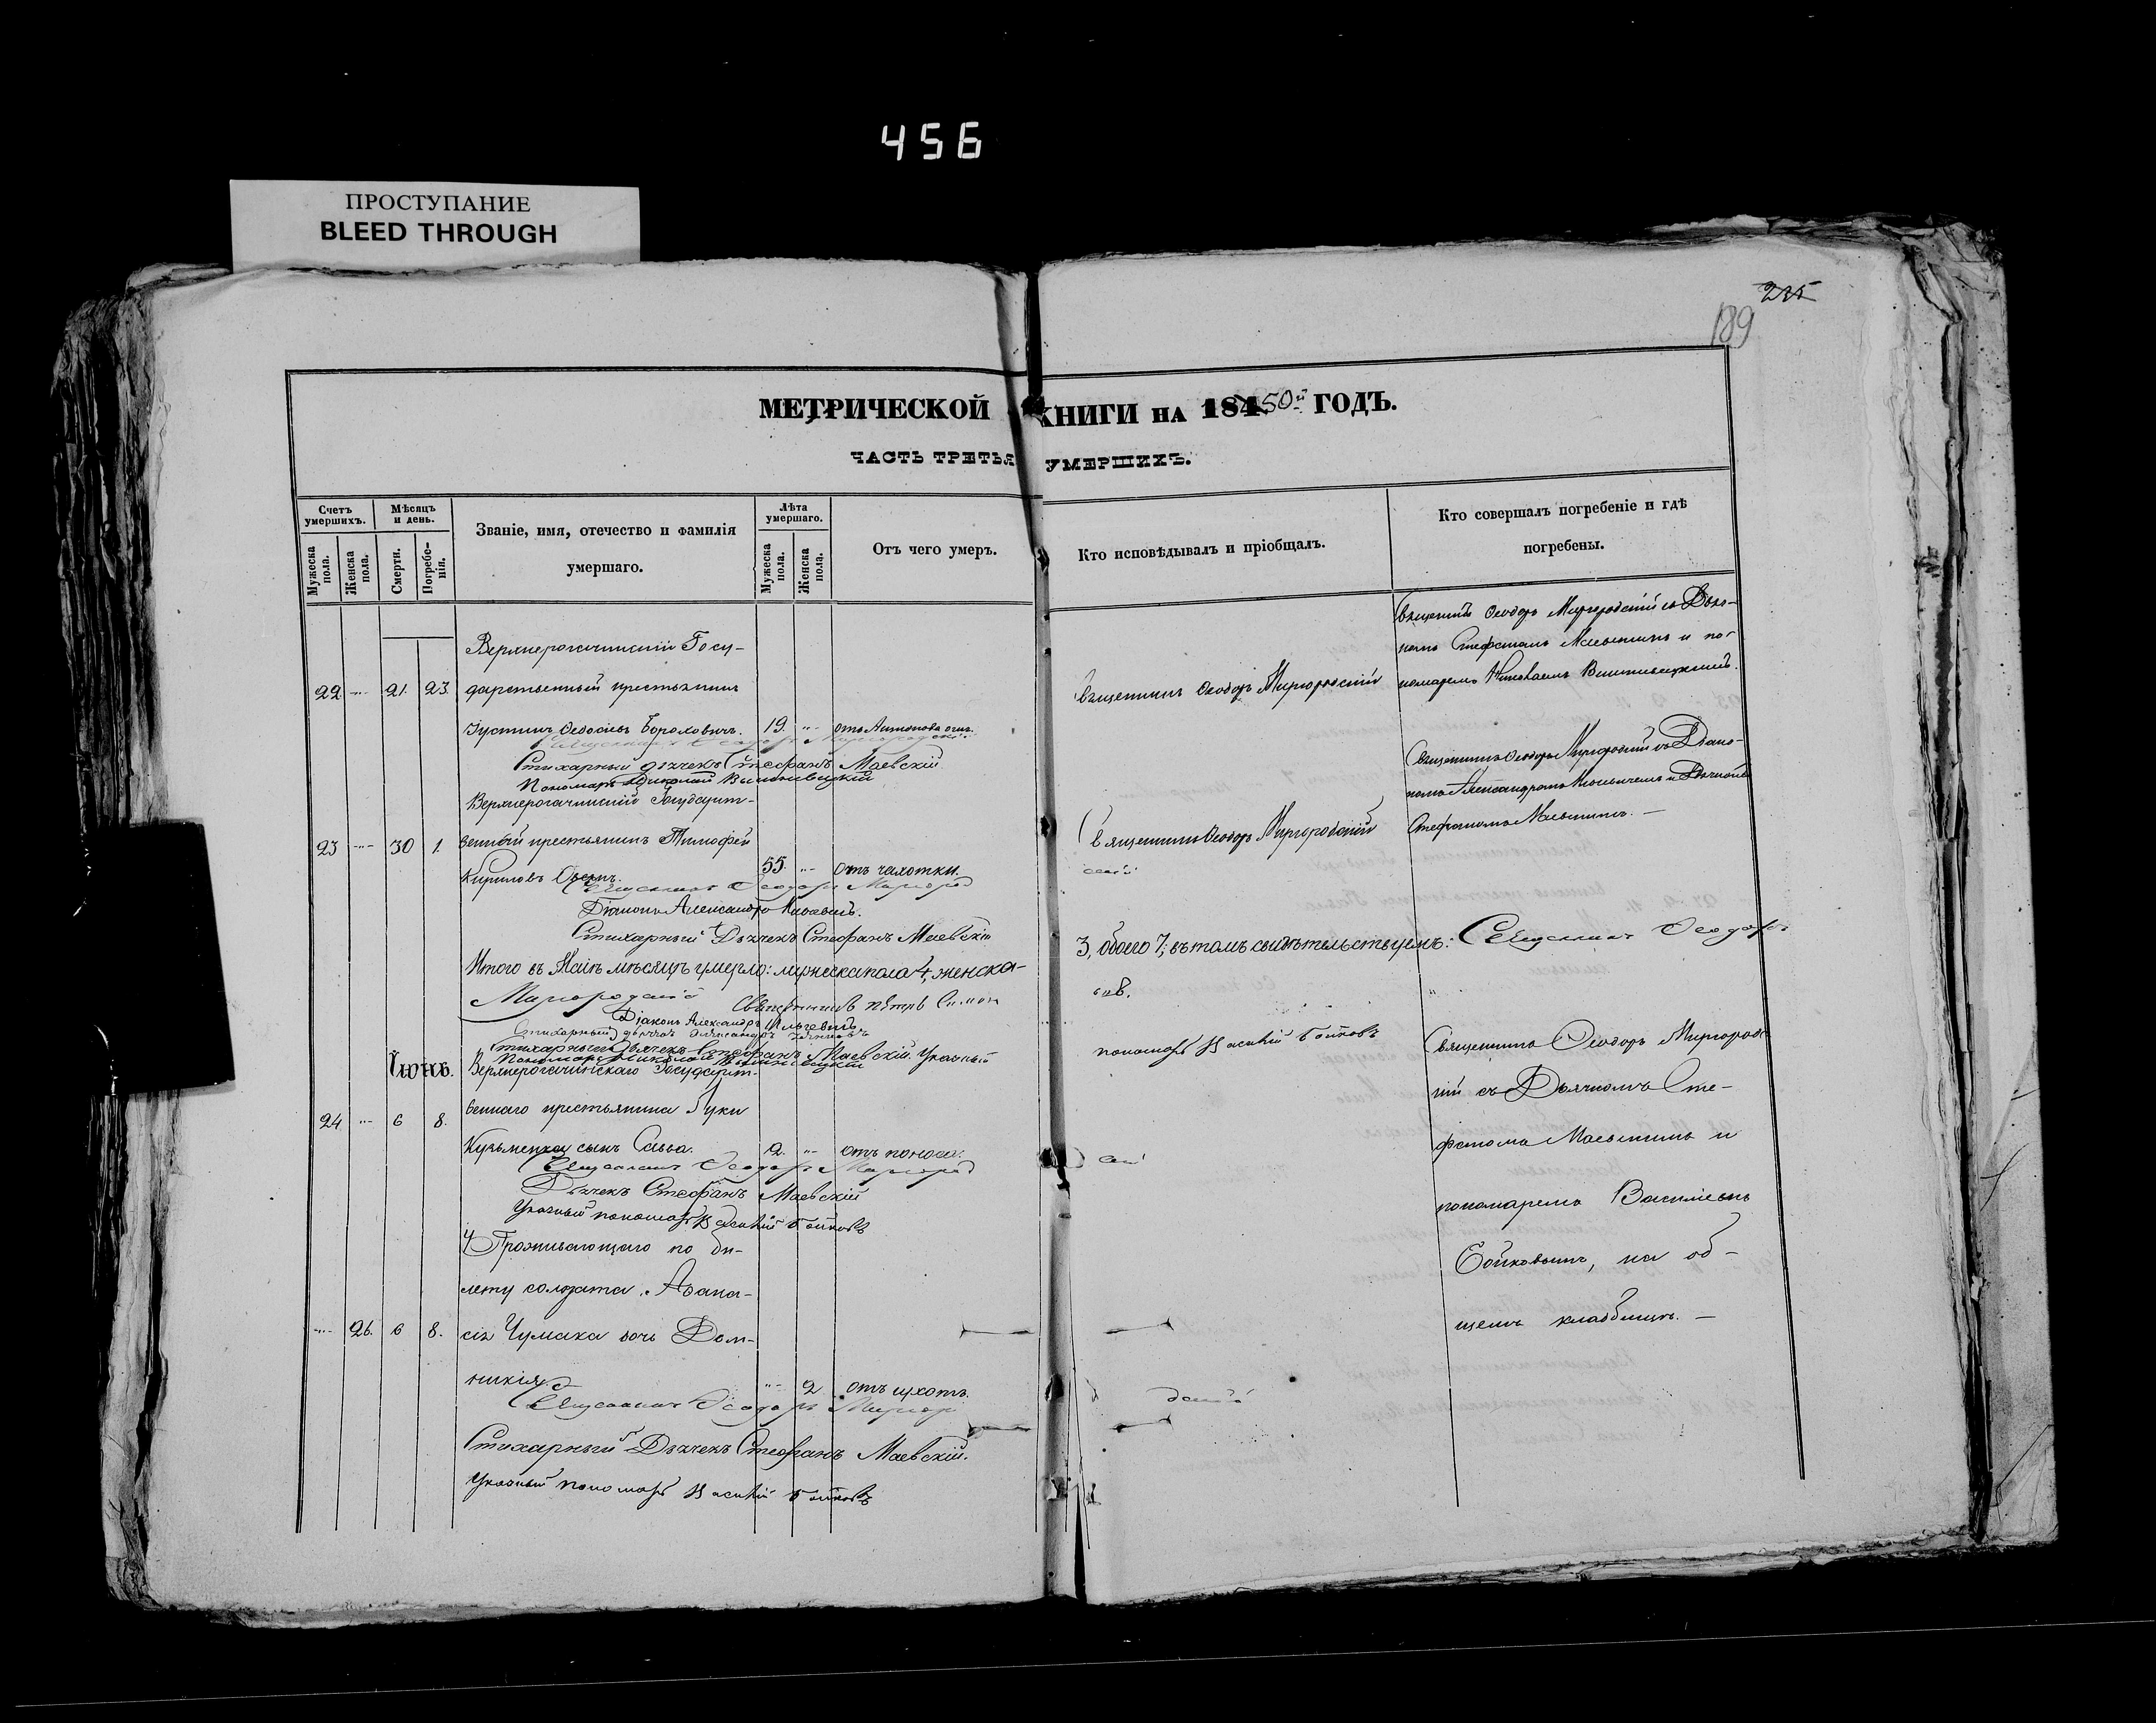 456
ПРОСТУПАНИЕ
BLEED THROUGH
235
189
МЕТРИЧЕСКОЙ КНИГИ НА 184 50й ГОДЪ.
ЧАСТЬ ТРЕТЬЯ УМЕРШИХЪ.
Счетъ умершихъ.
Мужеска пола.
Женска пола.
Мѣсяцъ и день.
Смерти.
Погребе-
нія.
Званіе, имя, отечество и фамилія
умершаго.
Лѣта умершаго.
Мужеска пола.
Женска пола.
Отъ чего умеръ.
Кто исповѣдывалъ и пріобщалъ.
Кто совершалъ погребеніе и гдѣ
погребены.
Верхнерогачинскій Госу-
22 21. 23 дарственный крестьянинъ
Іустинъ Ѳедосіевъ 19. отъ Антонова огня.
Священникъ Ѳеодоръ Миргородскій
Стихарный дьячекъ Стефанъ Маевскій
Пономарь Николай Вышневецкій
Священникъ Ѳеодоръ Миргородскій
Священникъ Ѳеодоръ Миргородскій съ Дьяч-
комъ Стефаномъ Маевскимъ и по-
номаремъ Николаемъ Вишневецкимъ.
Верхнерогачинскій Государст-
23 30 1. венный крестьянинъ Тимофей
Кириловъ 55. отъ чахотки.
Священникъ Ѳеодоръ Миргород
скій
Діаконъ Александръ
Стихарный Дьячекъ Стефанъ Маевскій
Священникъ Ѳеодоръ Миргородскій
Священникъ Ѳеодоръ Миргородскій съ Діако-
номъ Александромъ и Дьячкомъ
Стефаномъ Маевскимъ. —
Итого въ Маѣ мѣсяцѣ умерло: мужеска пола 4, женска-
3, обоего 7; въ томъ свидѣтельствуемъ: Священникъ Ѳеодоръ
Миргородскій Священникъ Петръ
Діаконъ Александръ
Стихарный дьячекъ
Стихарный Дьячекъ Стефанъ Маевскій. Указный
пономарь Василій Бойковъ
Пономарь Николай Вышневецкій
Іюнь. Верхнерогачинскаго Государст-
24 6 8. веннаго крестьянина Луки
Кузьменка сынъ Савва. 2. отъ поноса.
Священникъ Ѳеодоръ Миргород
скій
Дьячекъ Стефанъ Маевскій
Указный пономарь Василій Бойковъ
Священникъ Ѳеодоръ Миргородс-
кій съ Дьячкомъ Сте-
фаномъ Маевскимъ и
пономаремъ Василіемъ
Бойковымъ, на об-
щемъ кладбищѣ. —
Проживающаго по би-
лету солдата Аѳана-
26. 6 8. сія Чумака дочь Дом-
никія 2 отъ
Священникъ Ѳеодоръ Миргор
Стихарный Дьячекъ Стефанъ Маевскій.
Указный пономарь Василій Бойковъ